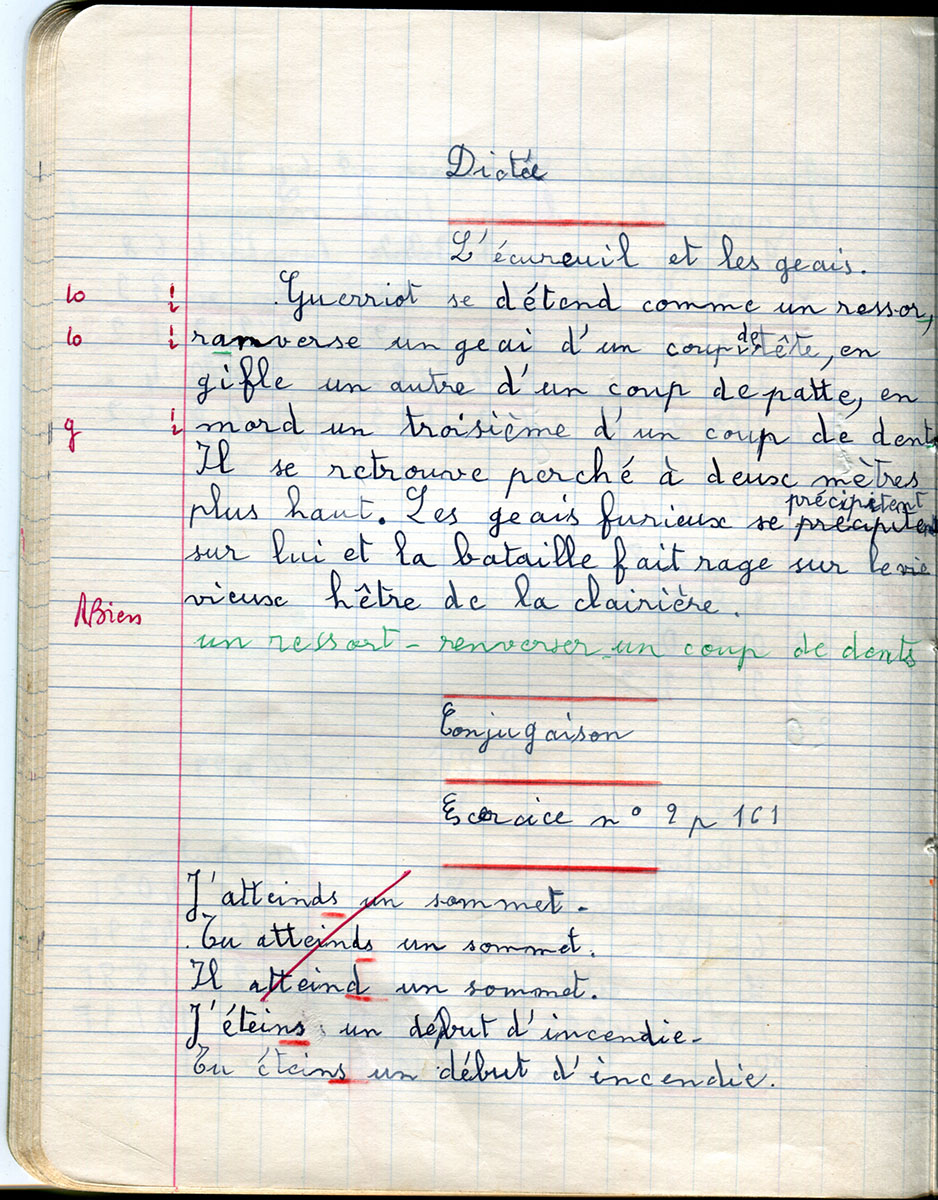 Dictée
L'écureuil et les geais.
10 Guerriot se détend comme un ressor,
10 ranverse un geai d'un coup de tête, en
gifle un autre d'un coup de patte, en
9 mord un troisième d'un coup de dent
Il se retrouve perché à deux mètres
précipitent
plus haut. Les geais furieux se précipitent
sur lui et la bataille fait rage sur le vie
vieux hêtre de la clairière.
ABien
un ressort - renverser - un coup de dents
Conjugaison
Exercice n° 2 p 161
J'atteinds un sommet.
Tu atteinds un sommet.
Il atteind un sommet.
J'éteins un début d'incendie.
Tu éteins un début d'incendie.